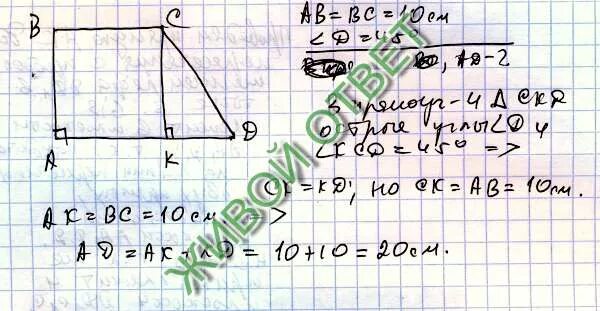 B C
A K D
AB = BC = 10 см
∠D = 45°
AD - ?
В прямоуг-м △ CKD
острые углы ∠D и
∠KCD = 45° =>
CK = KD, но CK = AB = 10 см.
AK = BC = 10 см =>
AD = AK + KD = 10 + 10 = 20 см.
ЖИВОЙ ОТВЕТ